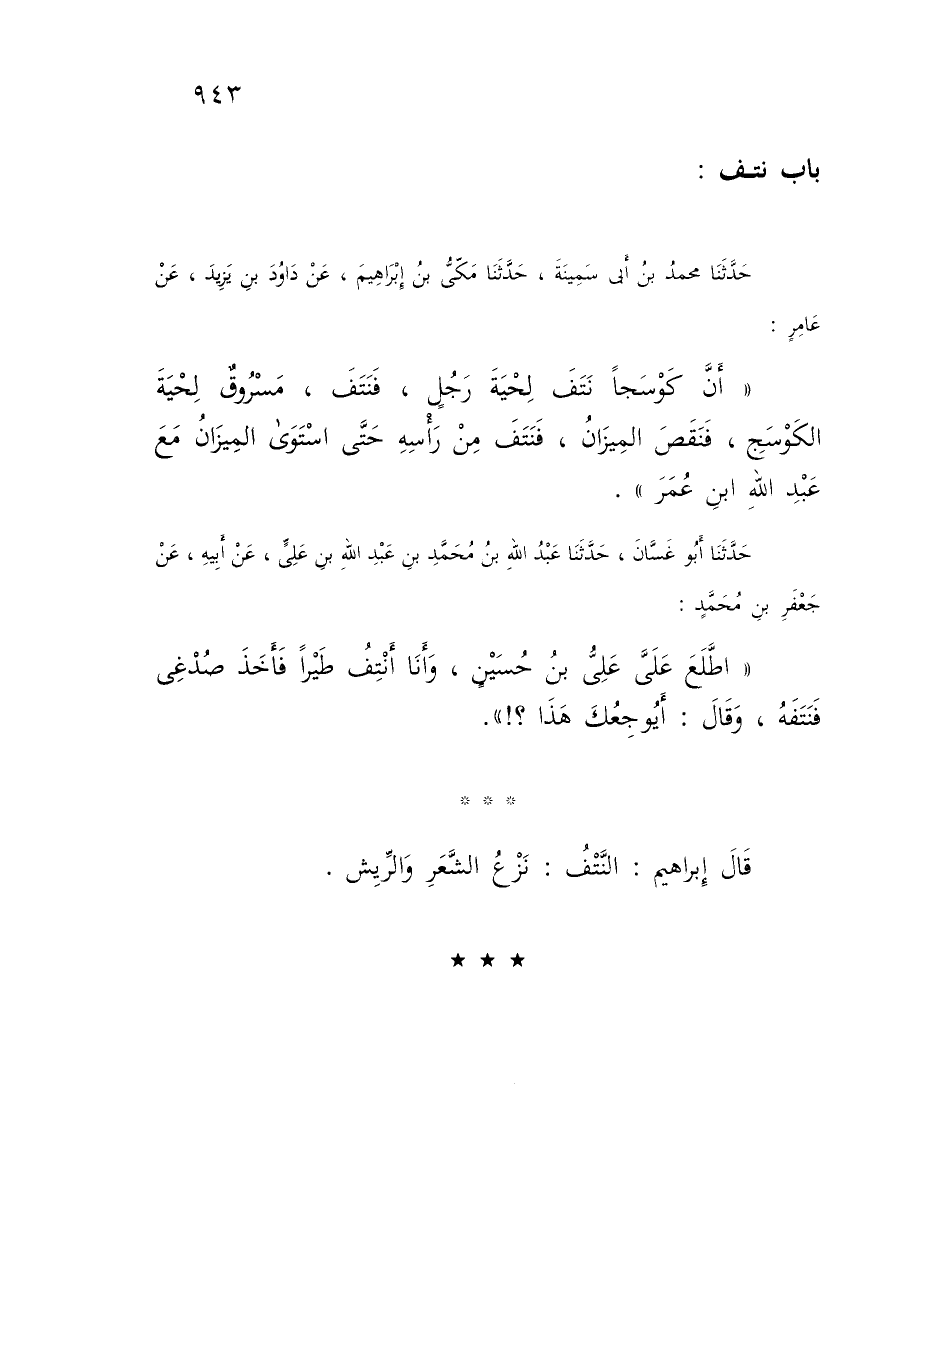 ٩٤٣
باب نتـف :
حَدَّثَنَا محمدُ بنُ أَبى سَمِينَةَ ، حَدَّثَنَا مَكّىُّ بنُ إِبْرَاهِيمَ ، عَنْ دَاوُدَ بنِ يَزِيدَ ، عَنْ
عَامِرٍ :
« أَنَّ كَوْسَجاً نَتَفَ لِحْيَةَ رَجُلٍ ، فَنَتَفَ ، مَسْرُوقٌ لِحْيَةَ
الكَوْسَجِ ، فَنَقَصَ المِيزَانُ ، فَنَتَفَ مِنْ رَأْسِهِ حَتَّى اسْتَوَىٰ المِيزَانُ مَعَ
عَبْدِ اللهِ ابنِ عُمَرَ » .
حَدَّثَنَا أَبُو غَسَّانَ ، حَدَّثَنَا عَبْدُ اللهِ بنُ مُحَمَّدِ بنِ عَبْدِ اللهِ بنِ عَلِىٍّ ، عَنْ أَبِيهِ ، عَنْ
جَعْفَرِ بنِ مُحَمَّدٍ :
« اطَّلَعَ عَلَىَّ عَلِىُّ بنُ حُسَيْنٍ ، وَأَنَا أَنْتِفُ طَيْراً فَأَخَذَ صُدْغِى
فَنَتَفَهُ ، وَقَالَ : أَيُوجِعُكَ هَذَا ؟!».
* * *
قَالَ إِبراهيم : النَّتْفُ : نَزْعُ الشَّعَرِ وَالرِّيِش .
★ ★ ★